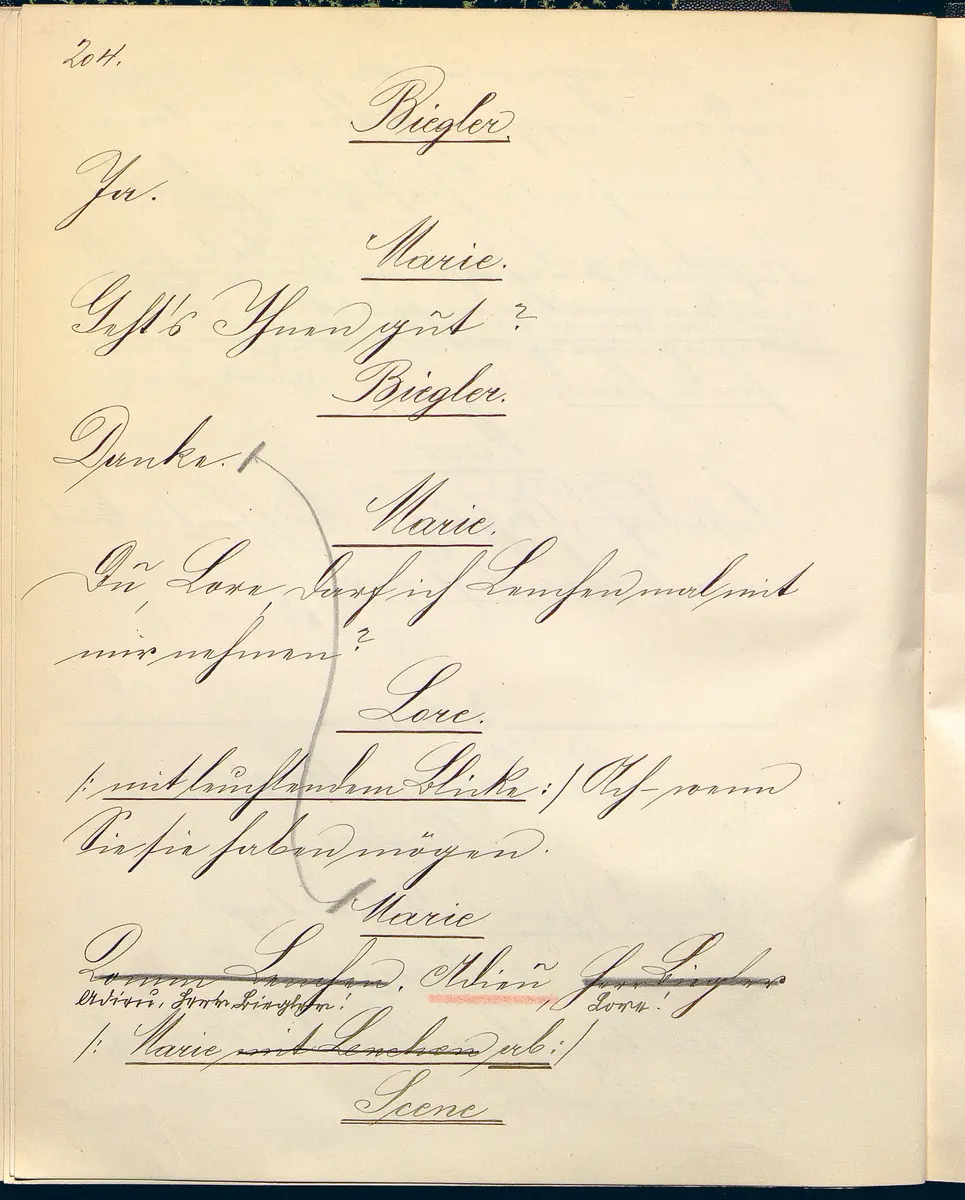 204.
Biegler.
Ja.
Marie.
Geht's Ihnen gut?
Biegler.
Danke.
Marie.
Du, Lore, darf ich Lenchen mal mit
mir nehmen?
Lore.
/: mit leuchtendem Blicke :/ Ach - wenn
Sie sie haben mögen.
Marie
Komm Lenchen. Adieu, Herr Biegler
Adieu, Herr Biegler! Lore!
/: Marie mit Lenchen ab :/
Scene